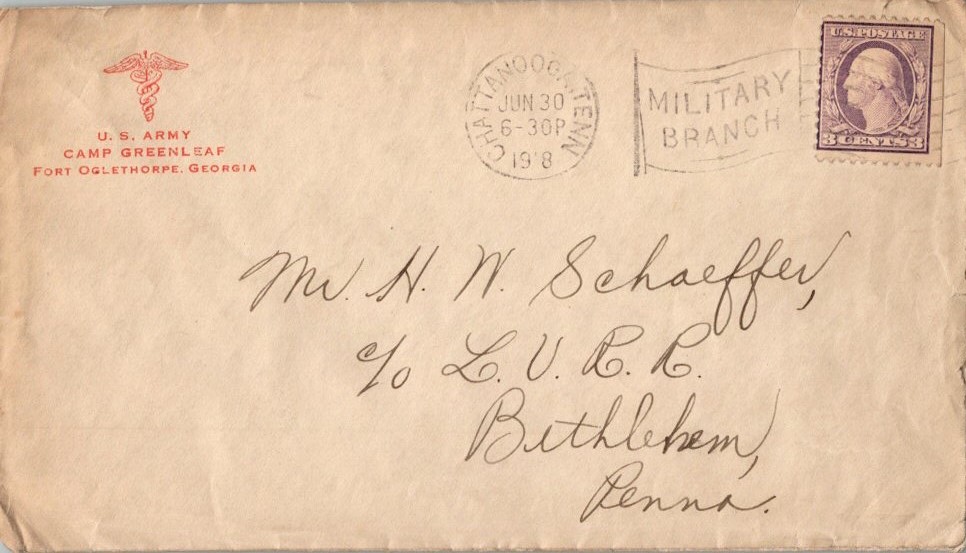 U. S. ARMY
CAMP GREENLEAF
FORT OGLETHORPE, GEORGIA
CHATTANOOGA, TENN
JUN 30
6-30P
19'8
MILITARY
BRANCH
U.S. POSTAGE
3 CENTS 3
Mr. H. W. Schaeffer,
c/o L. V. R. R.
Bethlehem,
Penna.